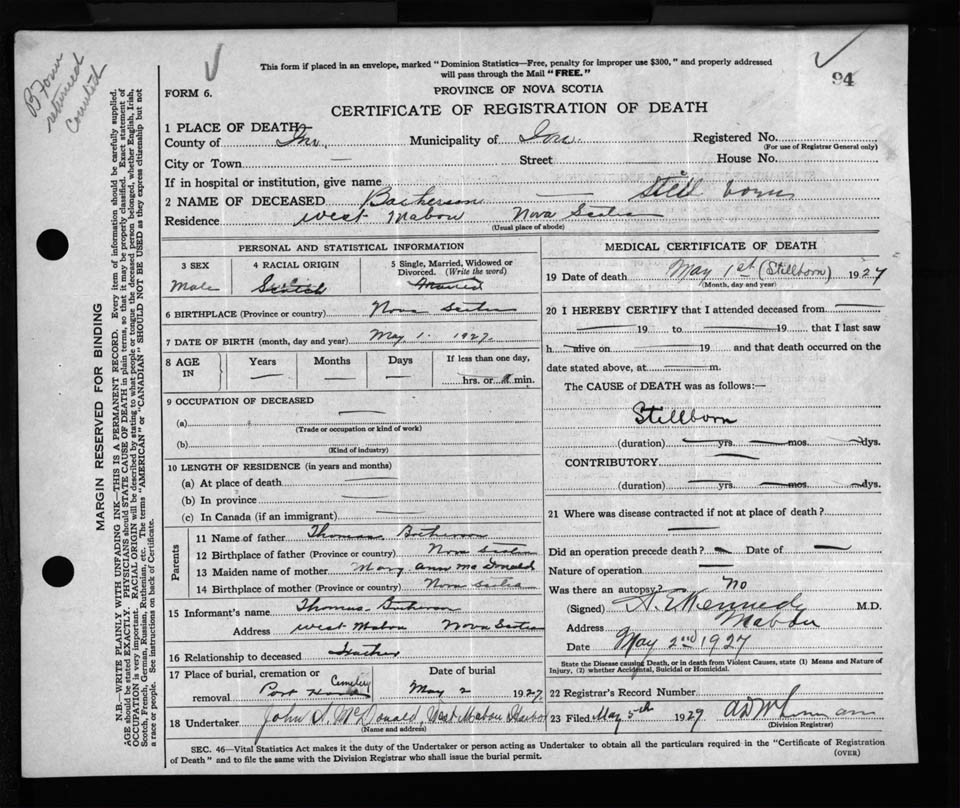 B Form
returned
Counted
This form if placed in an envelope, marked "Dominion Statistics—Free, penalty for improper use $300," and properly addressed
will pass through the Mail "FREE."
94
FORM 6.
PROVINCE OF NOVA SCOTIA
CERTIFICATE OF REGISTRATION OF DEATH
1 PLACE OF DEATH—
County of Inv. Municipality of Registered No.
(For use of Registrar General only)
City or Town — Street House No.
If in hospital or institution, give name Still born
2 NAME OF DECEASED —
Residence West Mabou Nova Scotia
(Usual place of abode)
MARGIN RESERVED FOR BINDING
N.B.—WRITE PLAINLY WITH UNFADING INK—THIS IS A PERMANENT RECORD. Every item of information should be carefully supplied.
AGE should be stated EXACTLY. PHYSICIANS should STATE CAUSE OF DEATH in plain terms, so that it may be properly classified. Exact statement of
OCCUPATION is very important. RACIAL ORIGIN will be described by stating to what people or tongue the deceased person belonged, whether English, Irish,
Scotch, French, German, Russian, Ruthenian, etc. The terms "AMERICAN" or "CANADIAN" SHOULD NOT BE USED as they express citizenship but not
a race or people. See instructions on back of Certificate.
PERSONAL AND STATISTICAL INFORMATION
3 SEX
Male
4 RACIAL ORIGIN
Scotch
5 Single, Married, Widowed or
Divorced. (Write the word)
6 BIRTHPLACE (Province or country) Nova Scotia
7 DATE OF BIRTH (month, day and year) May 1. 1927.
8 AGE
IN
Years
—
Months
—
Days
—
If less than one day,
hrs. or min.
9 OCCUPATION OF DECEASED
(a)
(Trade or occupation or kind of work)
(b)
(Kind of industry)
10 LENGTH OF RESIDENCE (in years and months)
(a) At place of death
(b) In province
(c) In Canada (if an immigrant)
Parents
11 Name of father Thomas
12 Birthplace of father (Province or country) Nova Scotia
13 Maiden name of mother Mary Ann McDonald
14 Birthplace of mother (Province or country) Nova Scotia
15 Informant's name Thomas
Address West Mabou Nova Scotia
16 Relationship to deceased Father
17 Place of burial, cremation or
removal Port Hood Cemetery
Date of burial
May 2 1927.
18 Undertaker John McDonald, West Mabou Harbor
(Name and address)
MEDICAL CERTIFICATE OF DEATH
19 Date of death May 1st (Stillborn) 1927
(Month, day and year)
20 I HEREBY CERTIFY that I attended deceased from
19 to 19 that I last saw
h alive on 19 and that death occurred on the
date stated above, at m.
The CAUSE of DEATH was as follows:—
Stillborn
(duration) yrs. mos. dys.
CONTRIBUTORY
(duration) yrs. mos. dys.
21 Where was disease contracted if not at place of death?
Did an operation precede death? Date of
Nature of operation
Was there an autopsy? No
(Signed) Kennedy M.D.
Address Mabou
Date May 2nd 1927
State the Disease causing Death, or in death from Violent Causes, state (1) Means and Nature of
Injury, (2) whether Accidental, Suicidal or Homicidal.
22 Registrar's Record Number
23 Filed May 5th 1927
(Division Registrar)
SEC. 46—Vital Statistics Act makes it the duty of the Undertaker or person acting as Undertaker to obtain all the particulars required in the "Certificate of Registration
of Death" and to file the same with the Division Registrar who shall issue the burial permit. (OVER)